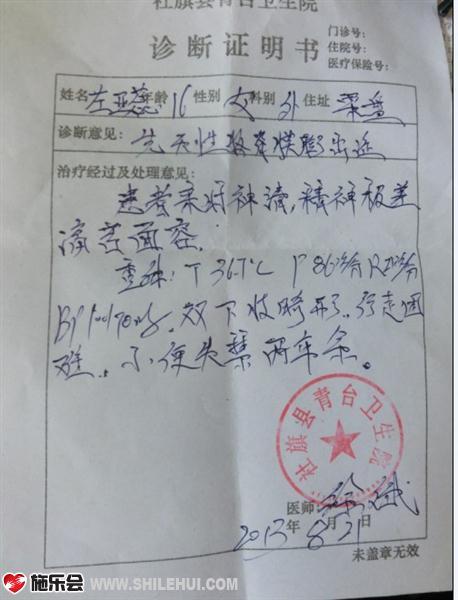 社旗县青台卫生院
诊断证明书
门诊号:
住院号:
医疗保险号:
姓名 左亚蕊 年龄 16 性别 女 科别 外 住址
诊断意见: 先天性脊脊膜膨出
治疗经过及处理意见:
患者来时神清,精神极差
痛苦面容。
查体:T 36.7℃ P 86次/分 R
BP 双下肢畸形,行走困
难,小便失禁两年余。
社旗县青台卫生院
医师:
2013年8月21日
未盖章无效
施乐会
www.SHILEHUI.COM